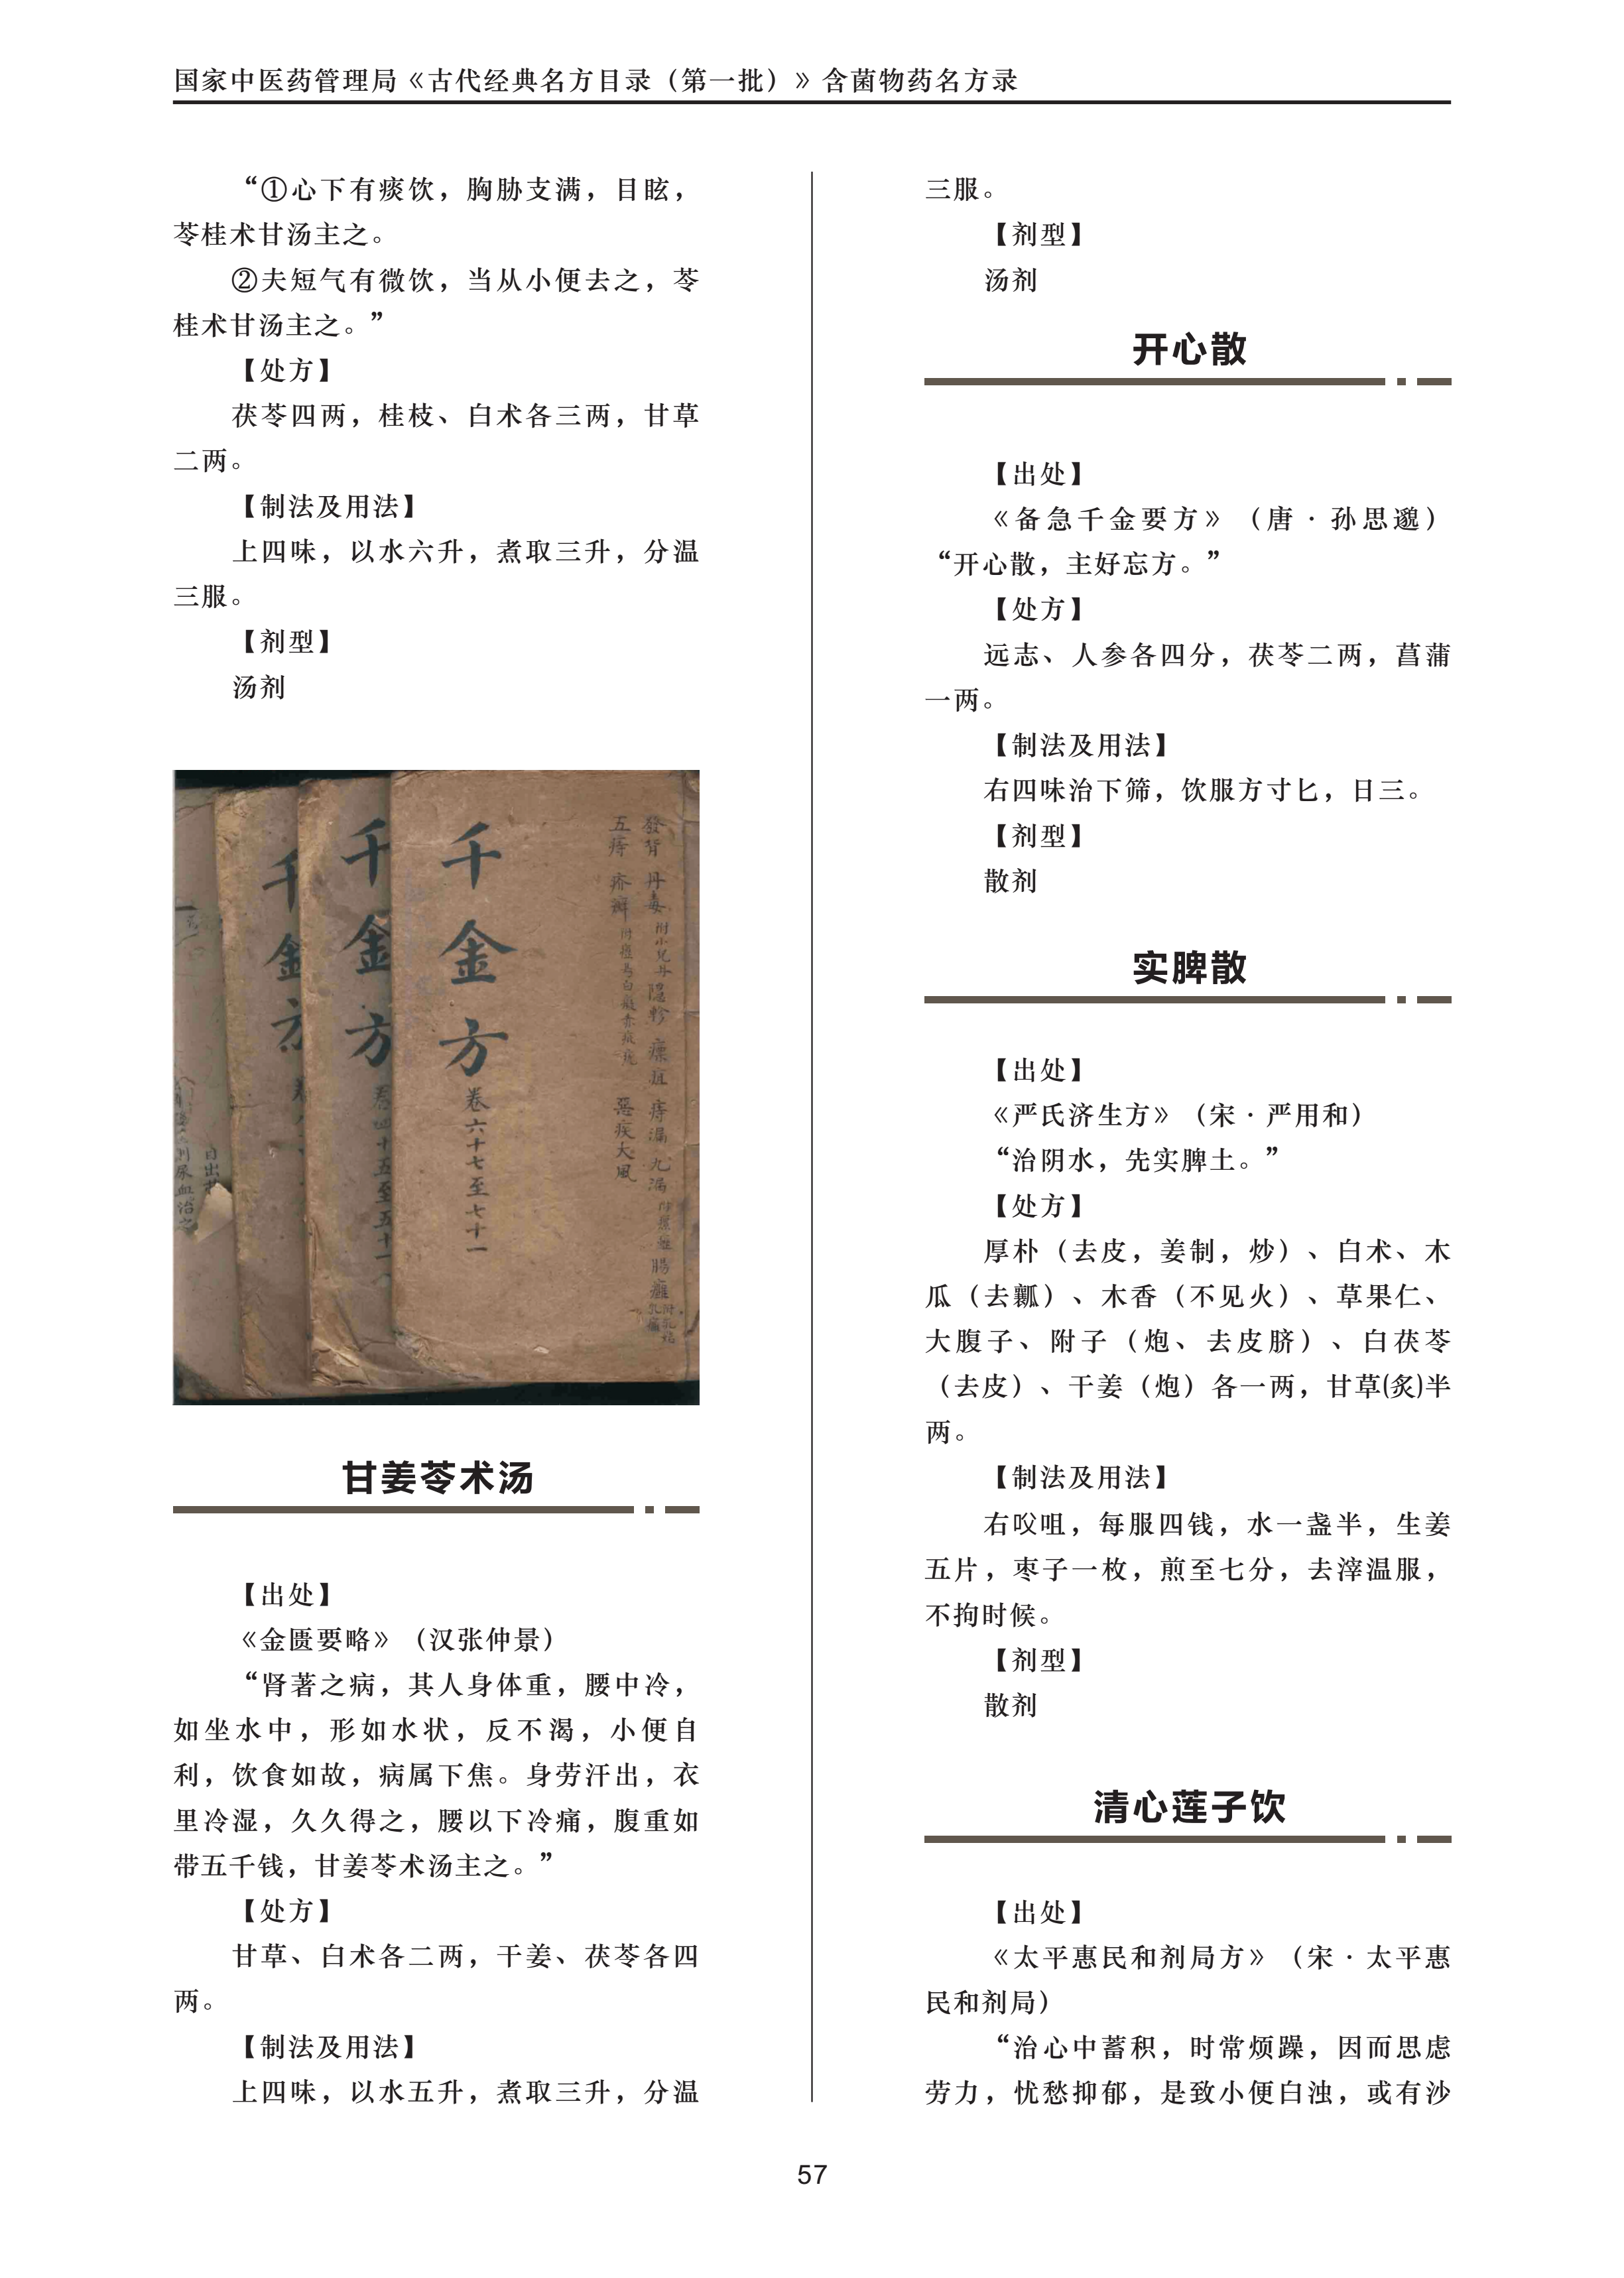 国家中医药管理局《古代经典名方目录（第一批）》含菌物药名方录
“①心下有痰饮，胸胁支满，目眩，
苓桂术甘汤主之。
②夫短气有微饮，当从小便去之，苓
桂术甘汤主之。”
【处方】
茯苓四两，桂枝、白术各三两，甘草
二两。
【制法及用法】
上四味，以水六升，煮取三升，分温
三服。
【剂型】
汤剂
千金方
千金方
千金方 卷六十七至七十一
卷四十五至五十一
發背 丹毒 附小兒丹 隐軫 瘭疽 痔漏 九漏
五痔 疥癬
惡疾大風
甘姜苓术汤
【出处】
《金匮要略》（汉张仲景）
“肾著之病，其人身体重，腰中冷，
如坐水中，形如水状，反不渴，小便自
利，饮食如故，病属下焦。身劳汗出，衣
里冷湿，久久得之，腰以下冷痛，腹重如
带五千钱，甘姜苓术汤主之。”
【处方】
甘草、白术各二两，干姜、茯苓各四
两。
【制法及用法】
上四味，以水五升，煮取三升，分温
三服。
【剂型】
汤剂
开心散
【出处】
《备急千金要方》（唐·孙思邈）
“开心散，主好忘方。”
【处方】
远志、人参各四分，茯苓二两，菖蒲
一两。
【制法及用法】
右四味治下筛，饮服方寸匕，日三。
【剂型】
散剂
实脾散
【出处】
《严氏济生方》（宋·严用和）
“治阴水，先实脾土。”
【处方】
厚朴（去皮，姜制，炒）、白术、木
瓜（去瓤）、木香（不见火）、草果仁、
大腹子、附子（炮、去皮脐）、白茯苓
（去皮）、干姜（炮）各一两，甘草(炙)半
两。
【制法及用法】
右㕮咀，每服四钱，水一盏半，生姜
五片，枣子一枚，煎至七分，去滓温服，
不拘时候。
【剂型】
散剂
清心莲子饮
【出处】
《太平惠民和剂局方》（宋·太平惠
民和剂局）
“治心中蓄积，时常烦躁，因而思虑
劳力，忧愁抑郁，是致小便白浊，或有沙
57